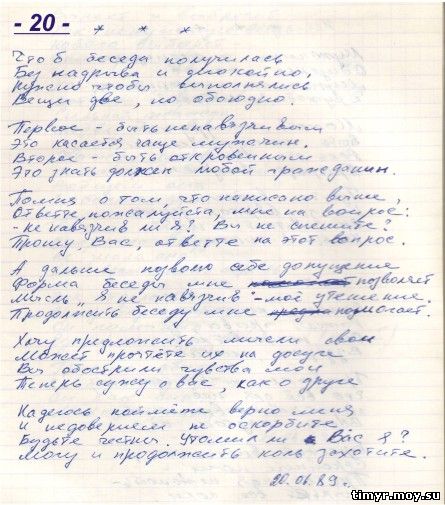 - 20 -
* * *
Что б беседы получилась
Без надрыва и спокойно,
Нужно чтобы выполнялись
Вещи две, но обоюдно.
Первое - быть ненавязчивым
Это касается чаще мужчин.
Второе - быть откровенным
Это знать должен любой гражданин.
Помня о том, что написано выше,
Ответте, пожалуйста, мне на вопрос:
- не навязчив ли я? Вы не спешите?
Прошу, Вас, ответте на этот вопрос.
А дальше позволю себе допущение
Форма беседы мне позволяет
Мысль „Я не навязчив" - моё утешение.
Продолжить беседу мне помогает.
Хочу предложить мысли свои
Может прочтёте их на досуге
Вы обострили чувства мои
Теперь сужу о вас, как о друге
Надеюсь поймёте верно меня
И недоверием не оскорбите
Будьте честны. Утомил ли Вас я?
Могу и продолжить коль захотите.
20.06.89г.
timyr.moy.su